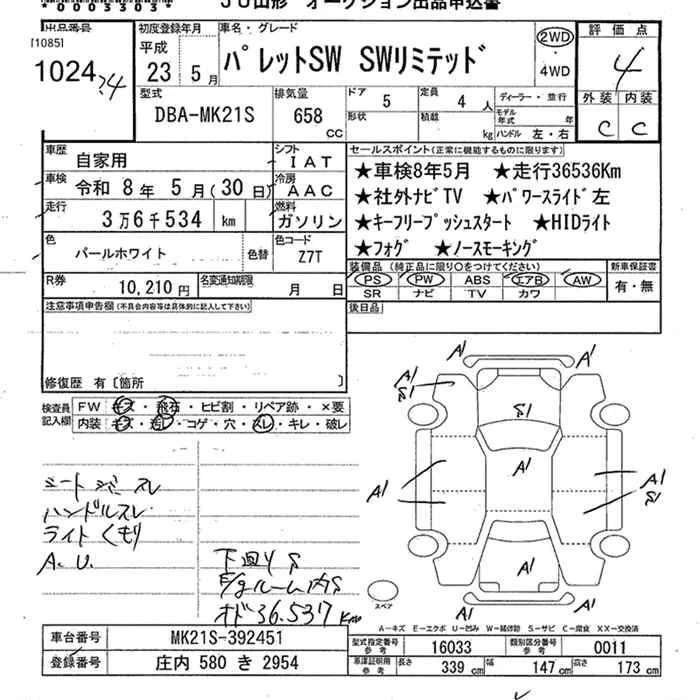 *0003303*
JU山形 オークション出品申込書
出品番号
[1085]
1024
初度登録年月
平成
23年5月
車名・グレード
パレットSW SWリミテッド
2WD
4WD
評価点
4
外装 内装
C C
型式
DBA-MK21S
排気量
658
CC
ドア
5
形状
定員
4人
積載
kg
ディーラー・並行
モデル年式 年
ハンドル 左・右
車歴
自家用
シフト
IAT
車検
令和 8年 5月(30日)
冷房
AAC
走行
3万6千534 km
燃料
ガソリン
色
パールホワイト
色替
色コード
Z7T
R券
10,210円
名変通知期限
月 日
セールスポイント(正常に機能するものに限ります)
★車検8年5月 ★走行36536Km
★社外ナビTV ★パワースライド左
★キーフリープッシュスタート ★HIDライト
★フォグ ★ノースモーキング
装備品 (純正品に限り○をつけてください)
PS PW ABS エアB AW
SR ナビ TV カワ
新車保証書
有・無
後日品
注意事項申告欄(不具合内容等は具体的に記入して下さい)
修復歴 有〔箇所 〕
検査員
記入欄
FW キズ・飛石・ヒビ割・リペア跡・×要
内装 キズ・汚レ・コゲ・穴・スレ・キレ・破レ
ハンドルスレ
ライトくもり
A.U.
下回りS
オド36.537km
A1
A1
A1
S1
S1
A1
A1
A1
S1
A1
A1
A1
スペア
A-キズ E-エクボ U-凹み W-補修跡 S-サビ C-腐食 XX-交換済
車台番号
MK21S-392451
登録番号
庄内 580 き 2954
型式指定番号
参考
16033
類別区分番号
参考
0011
車庫証明用
参考
長さ
339 cm
幅
147 cm
高さ
173 cm